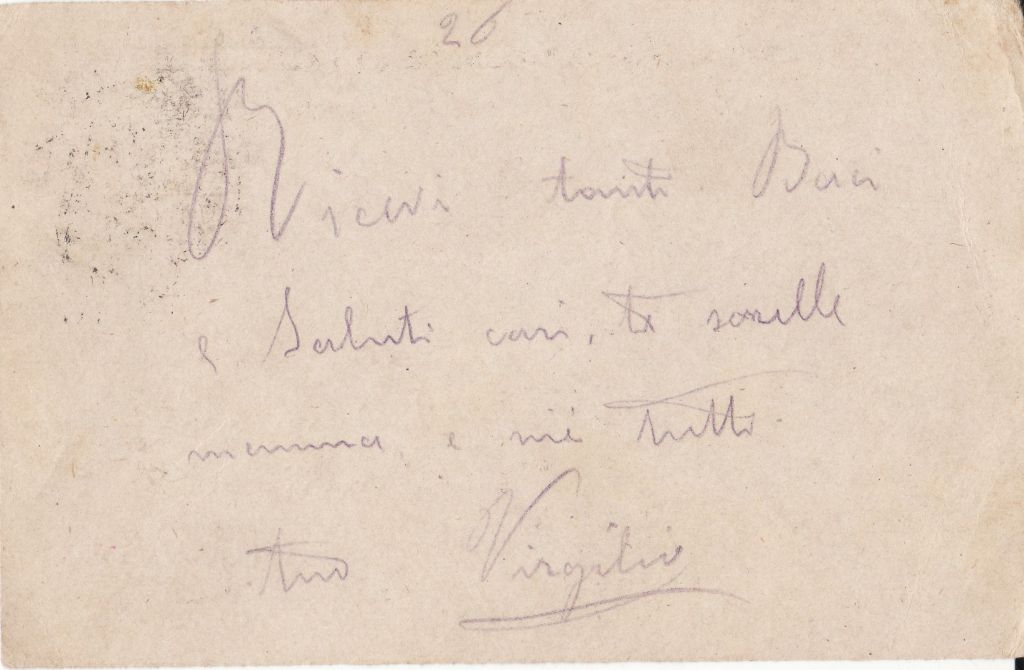 26
Ricevi tanti Baci
e Saluti cari, te sorelle
mamma e miei tutti.
tuo Virgilio